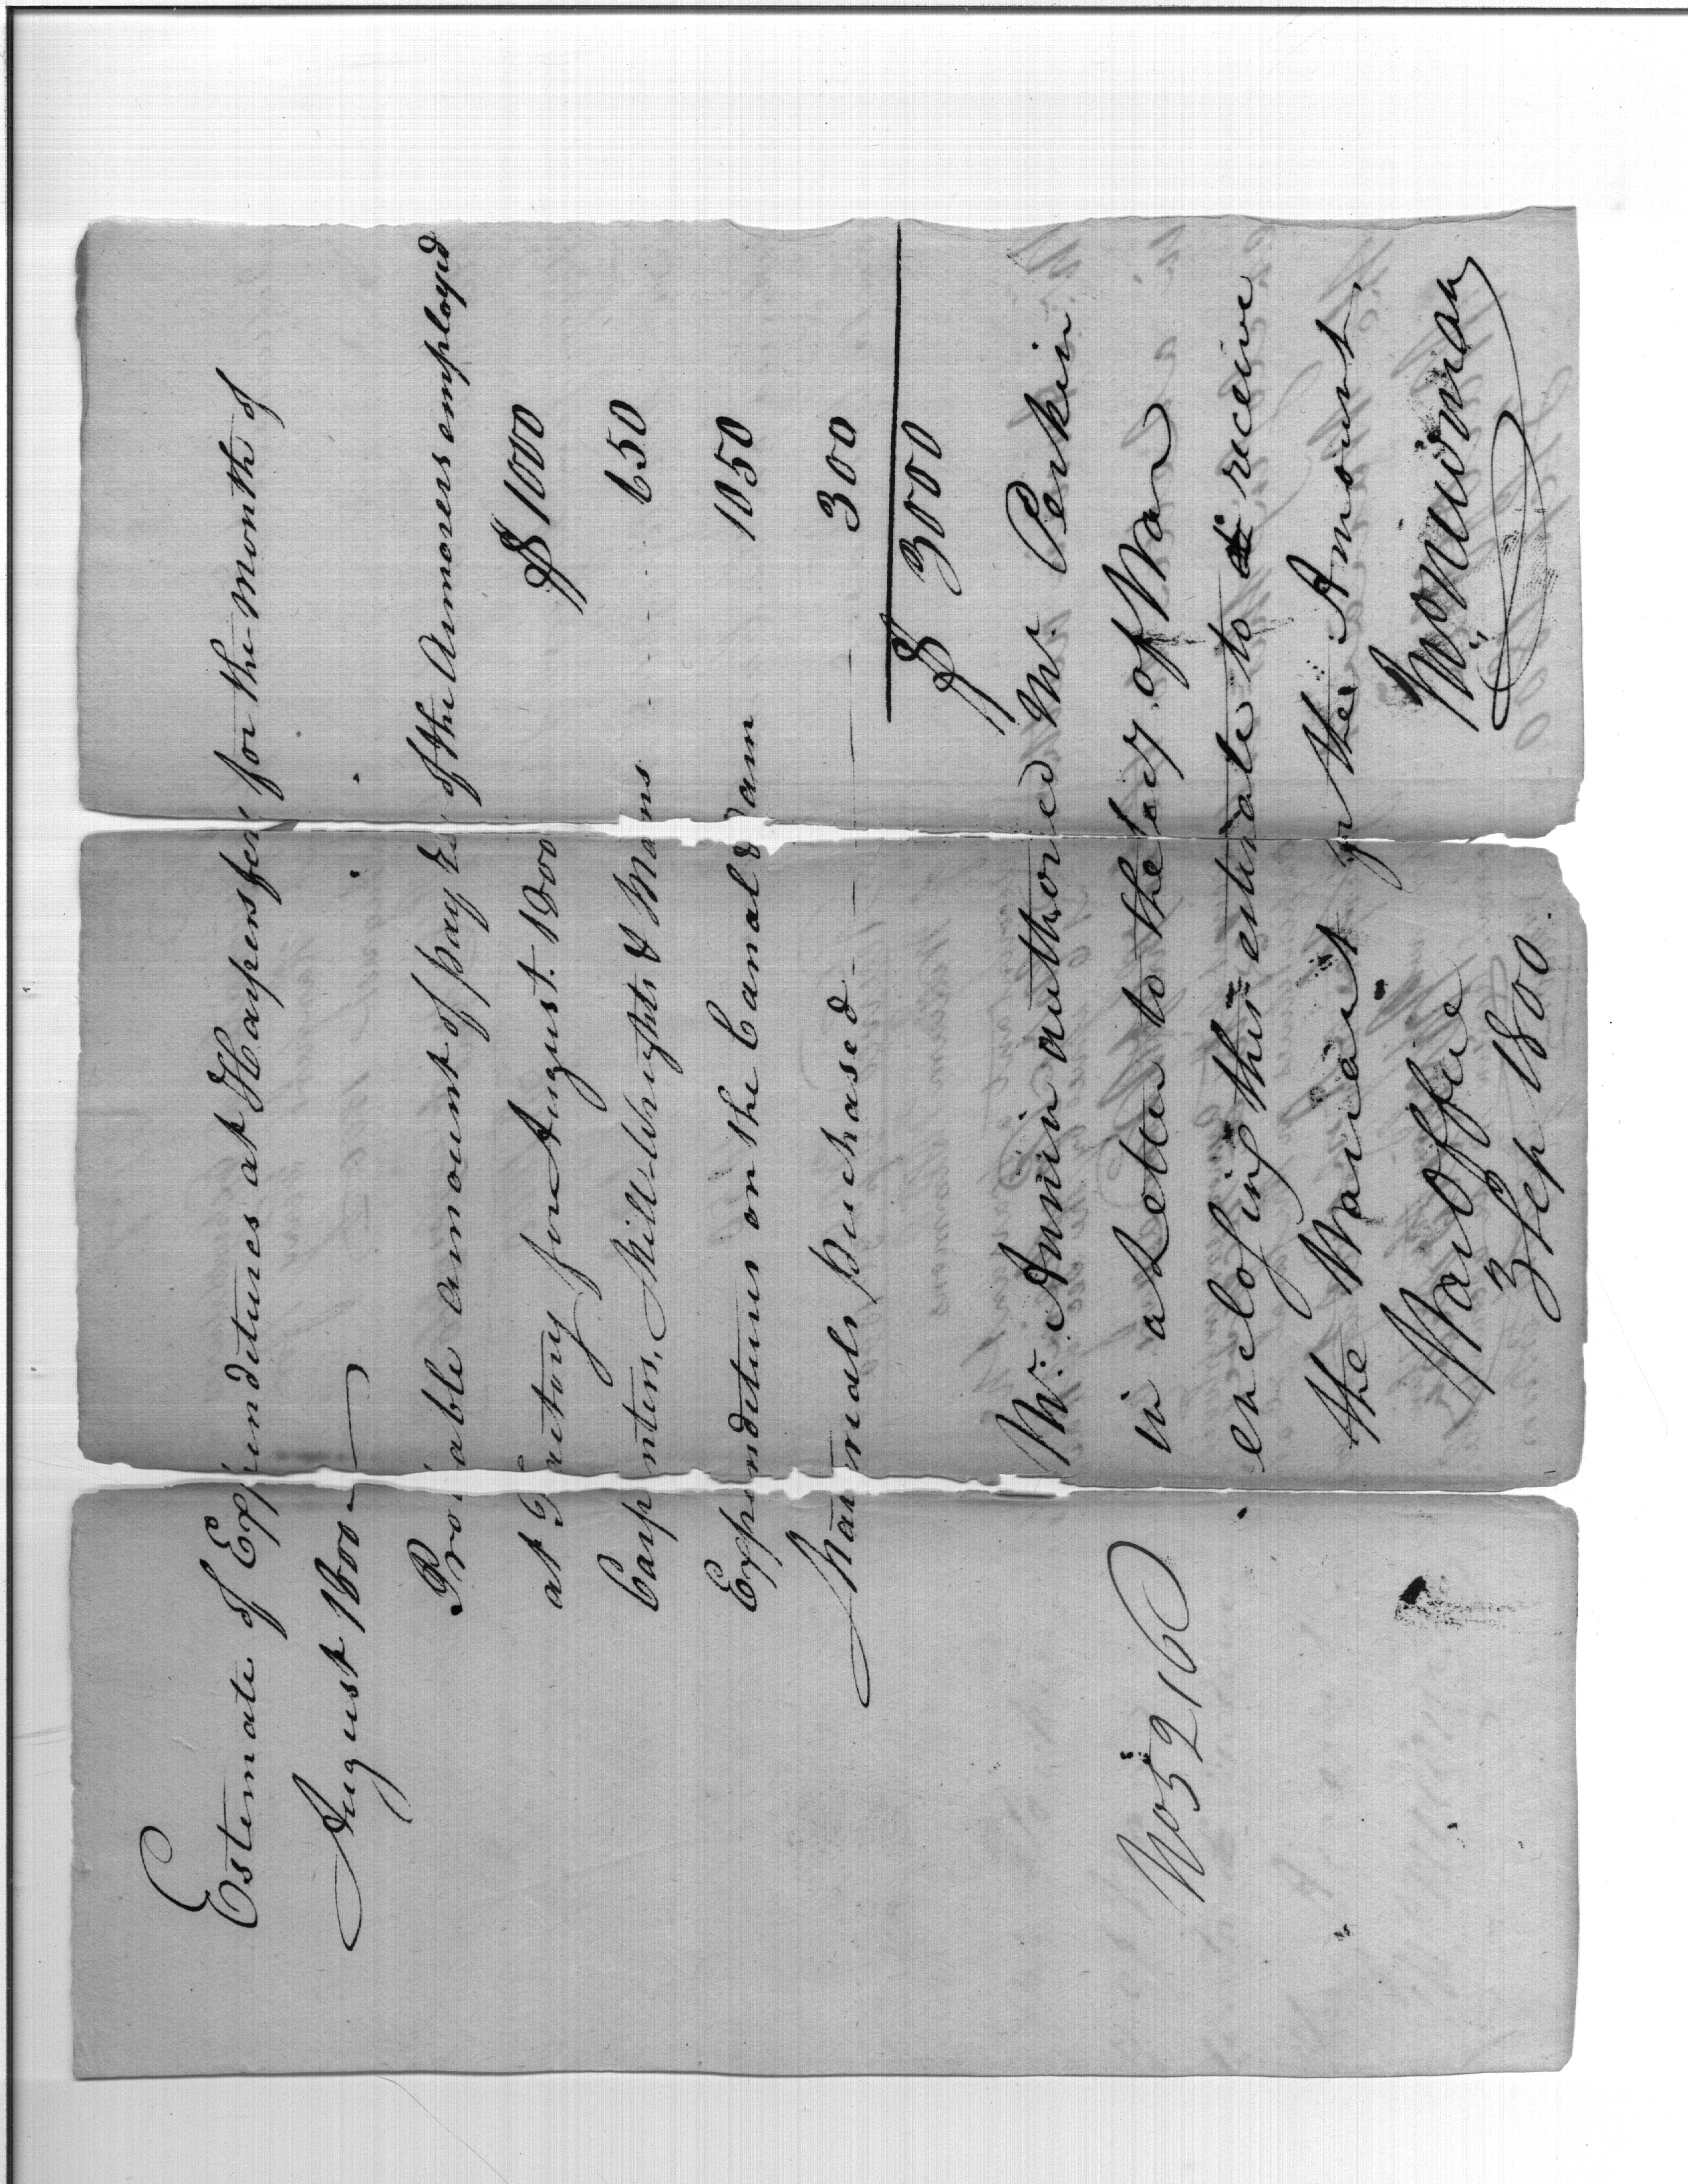 Estimate of Expenditures at Harpers ferry for the month of
August 1800
Probable amount of pay &c of the Armorers employd
at Factory for August 1800 $ 1000
Carpenters, Mill Wrights & Masons 650
Expenditures on the Canal & dam 1050
Materials purchased 300
$ 3000
Mr. Annin authorised Mr. Perkin
in a Letter to the Secy. of War
enclosing this estimate to receive
the Warrant for the Amount.
War Office
3 Sep 1800.
Wm Newman
No 5216